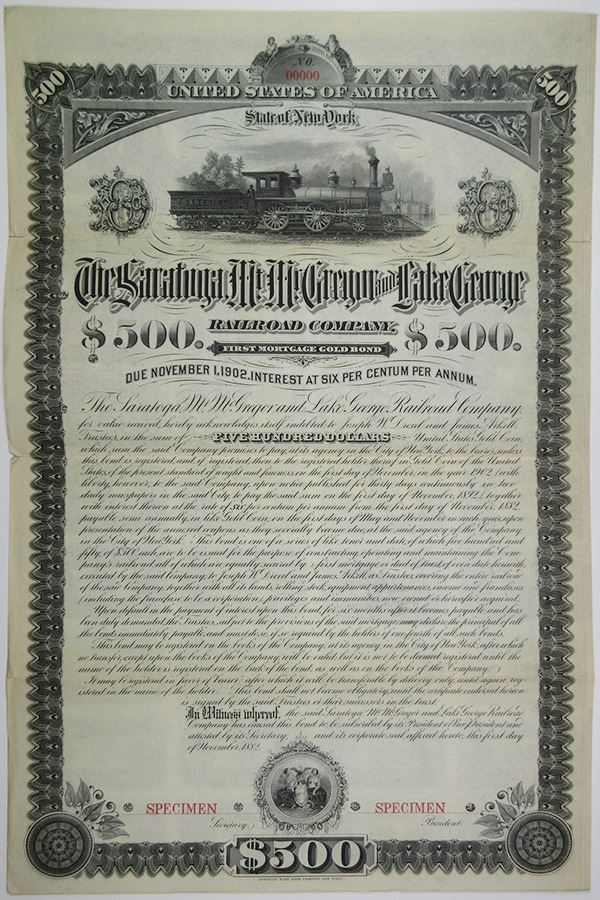 No.
00000
500 500
UNITED STATES OF AMERICA
State of New York
The Saratoga, Mt. McGregor and Lake George
$500. RAILROAD COMPANY, $500.
FIRST MORTGAGE GOLD BOND
DUE NOVEMBER 1, 1902. INTEREST AT SIX PER CENTUM PER ANNUM.
The Saratoga, Mt. McGregor and Lake George Railroad Company,
for value received, hereby acknowledges itself indebted to Joseph W. Drexel and James Arkell,
Trustees, in the sum of FIVE HUNDRED DOLLARS United States Gold Coin,
which sum the said Company promises to pay, at its agency in the City of New York, to the bearer, unless
this bond is registered and if registered, then to the registered holder thereof in Gold Coin of the United
States, of the present standard of weight and fineness, on the first day of November, in the year 1902, (with
liberty, however, to the said Company, upon notice published for thirty days continuously in two
daily newspapers in the said City, to pay the said sum on the first day of November, 1892,) together
with interest thereon at the rate of six per centum per annum from the first day of November, 1882,
payable semi-annually, in like Gold Coin, on the first days of May and November in each year, upon
presentation of the annexed coupons as they severally become due, at the said agency of the Company
in the City of New York. This bond is one of a series of like tenor and date, of which five hundred and
fifty, of $500 each, are to be issued for the purpose of constructing, operating and maintaining the Com-
pany's railroad, all of which are equally secured by a first mortgage or deed of trust, of even date herewith,
executed by the said Company, to Joseph W. Drexel and James Arkell, as Trustees, covering the entire railroad
of the said Company, together with all its lands, rolling stock, equipment, appurtenances, income and franchises
(including the franchise to be a corporation), privileges and immunities, now owned or hereafter acquired.
Upon default in the payment of interest upon this bond for six months after it becomes payable and has
been duly demanded, the Trustees, subject to the provisions of the said mortgage, may declare the principal of all
the bonds immediately payable, and must do so, if so required by the holders of one fourth of all such bonds.
This bond may be registered on the books of the Company, at its agency, in the City of New York, after which
no transfer, except upon the books of the Company, will be valid, but it is not to be deemed registered until the
name of the holder is registered on the back of the bond, as well as on the books of the Company.
It may be registered in favor of bearer, after which it will be transferable by delivery only, until again reg-
istered in the name of the holder. This bond shall not become obligatory, until the certificate endorsed hereon
is signed by the said Trustees or their successors in the trust.
In Witness whereof, the said Saratoga, Mt. McGregor and Lake George Railroad
Company has caused this bond to be subscribed by its President or Vice President and
attested by its Secretary, and its corporate seal affixed hereto, this first day
of November, 1882.
SPECIMEN SPECIMEN
Secretary. President.
$500
AMERICAN BANK NOTE COMPANY, NEW YORK.